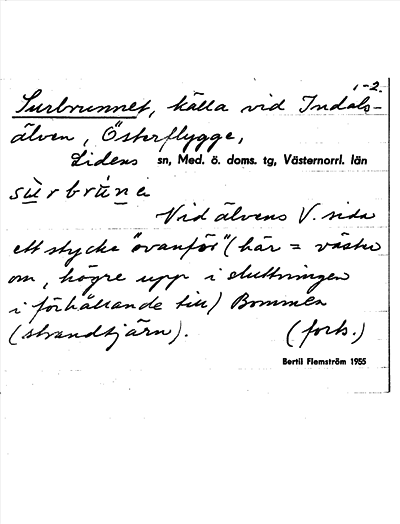 1-2.
Surbrunnet, källa vid Indals-
älven, Österflygge,
Lidens sn, Med. ö. doms. tg, Västernorrl. län
sùrbrùne
Vid älvens V. sida
ett stycke "ovanför" (här = väster
om, högre upp i sluttningen
i förhållande till) Bommen
(strandtjärn). (forts.)
Bertil Flemström 1955